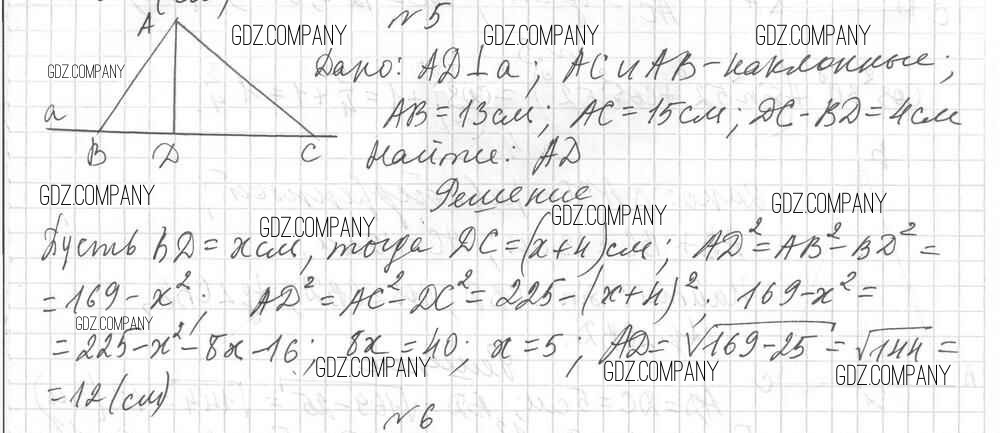 №5
A
Дано: AD⊥a; AC и AB - наклонные;
a
AB = 13 см; AC = 15 см; DC - BD = 4 см
B D C
Найти: AD
Решение
Пусть BD = x см, тогда DC = (x+4) см; AD² = AB² - BD² =
= 169 - x²; AD² = AC² - DC² = 225 - (x+4)²; 169 - x² =
= 225 - x² - 8x - 16; 8x = 40; x = 5; AD = √169-25 = √144 =
= 12 (см)
№6
GDZ.COMPANY
GDZ.COMPANY
GDZ.COMPANY
GDZ.COMPANY
GDZ.COMPANY
GDZ.COMPANY
GDZ.COMPANY
GDZ.COMPANY
GDZ.COMPANY
GDZ.COMPANY
GDZ.COMPANY
GDZ.COMPANY